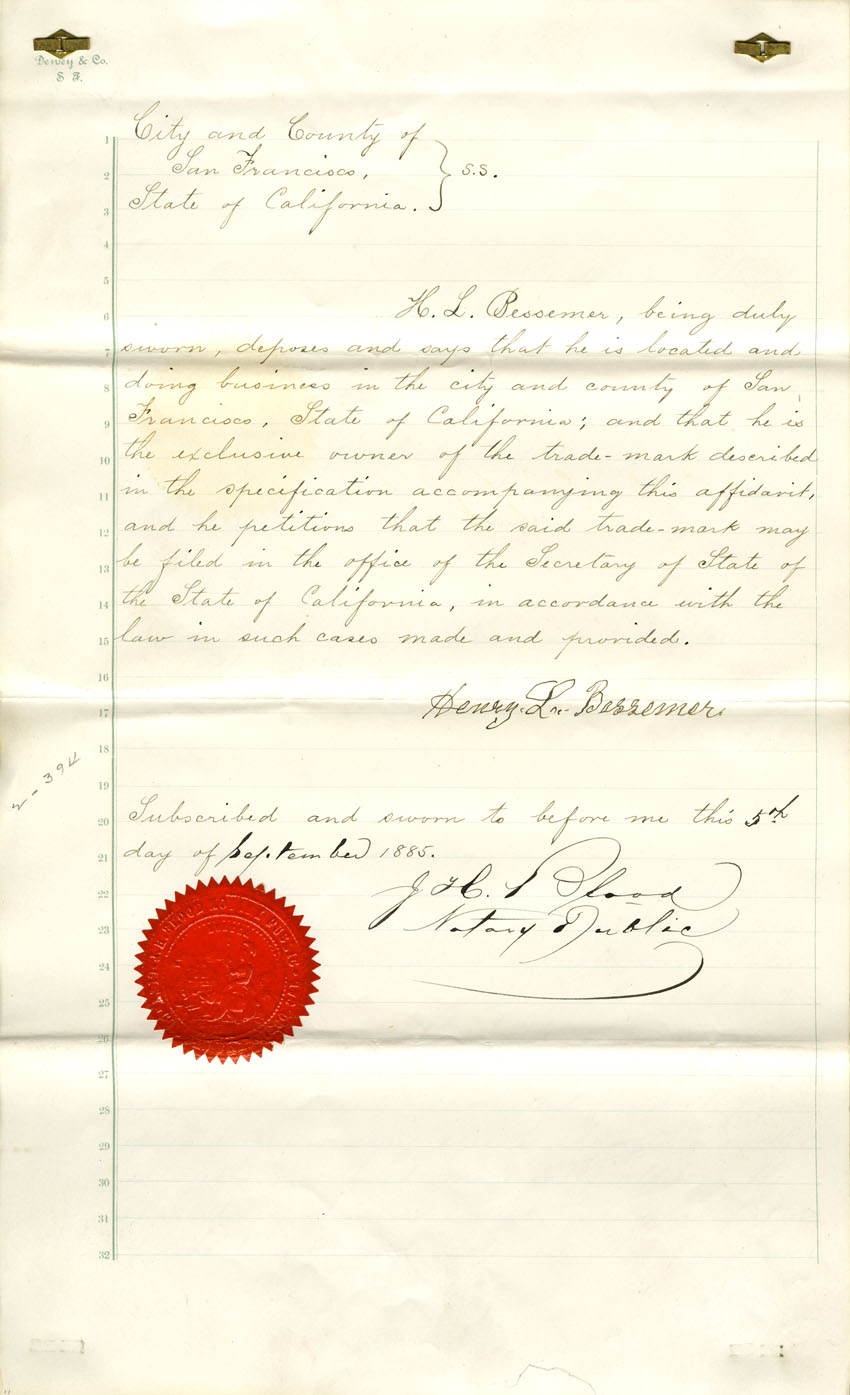 Dewey & Co.
S F.
1 City and County of
2 San Francisco, } s.s.
3 State of California.
4
5
6 H. L. Bessemer, being duly
7 sworn, deposes and says that he is located and
8 doing business in the city and county of San
9 Francisco, State of California; and that he is
10 the exclusive owner of the trade-mark described
11 in the specification accompanying this affidavit,
12 and he petitions that the said trade-mark may
13 be filed in the office of the Secretary of State of
14 the State of California, in accordance with the
15 law in such cases made and provided.
16
17 Henry. L. Bessemer.
18
19
20 Subscribed and sworn to before me this 5th
21 day of September 1885.
22 J H. Blood
23 Notary Public
24
25
26
27
28
29
30
31
32